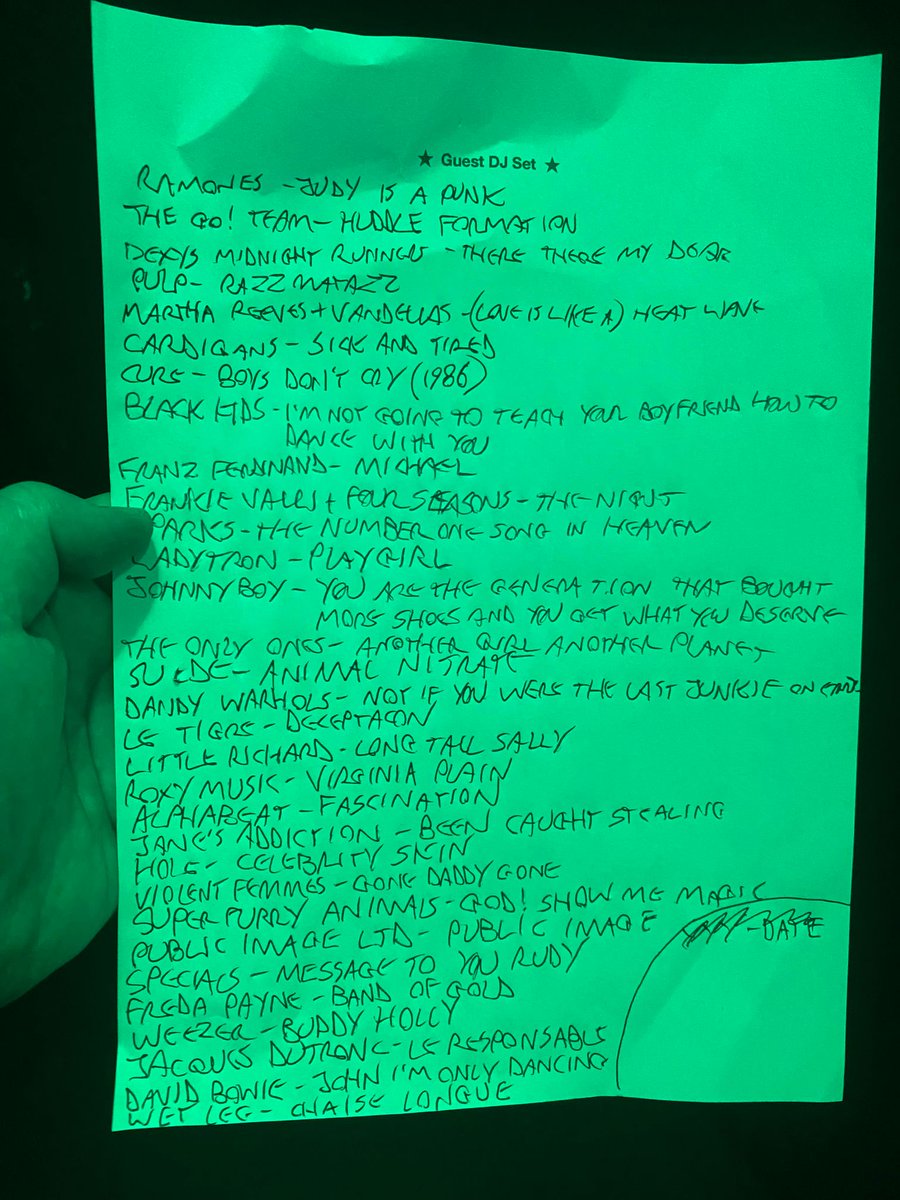 ★ Guest DJ Set ★
RAMONES - JUDY IS A PUNK
THE GO! TEAM - HUDDLE FORMATION
DEXYS MIDNIGHT RUNNERS - THERE THERE MY DEAR
PULP - RAZZMATAZZ
MARTHA REEVES + VANDELLAS - (LOVE IS LIKE A) HEAT WAVE
CARDIGANS - SICK AND TIRED
CURE - BOYS DON'T CRY (1986)
BLACK KIDS - I'M NOT GOING TO TEACH YOUR BOYFRIEND HOW TO
DANCE WITH YOU
FRANZ FERDINAND - MICHAEL
FRANKIE VALLI + FOUR SEASONS - THE NIGHT
SPARKS - THE NUMBER ONE SONG IN HEAVEN
LADYTRON - PLAYGIRL
JOHNNY BOY - YOU ARE THE GENERATION THAT BOUGHT
MORE SHOES AND YOU GET WHAT YOU DESERVE
THE ONLY ONES - ANOTHER GIRL ANOTHER PLANET
SUEDE - ANIMAL NITRATE
DANDY WARHOLS - NOT IF YOU WERE THE LAST JUNKIE ON EARTH
LE TIGRE - DECEPTACON
LITTLE RICHARD - LONG TALL SALLY
ROXY MUSIC - VIRGINIA PLAIN
ALPHABEAT - FASCINATION
JANE'S ADDICTION - BEEN CAUGHT STEALING
HOLE - CELEBRITY SKIN
VIOLENT FEMMES - GONE DADDY GONE
SUPER FURRY ANIMALS - GOD! SHOW ME MAGIC
PUBLIC IMAGE LTD - PUBLIC IMAGE
SPECIALS - MESSAGE TO YOU RUDY
FREDA PAYNE - BAND OF GOLD
WEEZER - BUDDY HOLLY
JACQUES DUTRONC - LE RESPONSABLE
DAVID BOWIE - JOHN I'M ONLY DANCING
WET LEG - CHAISE LONGUE
- DATE